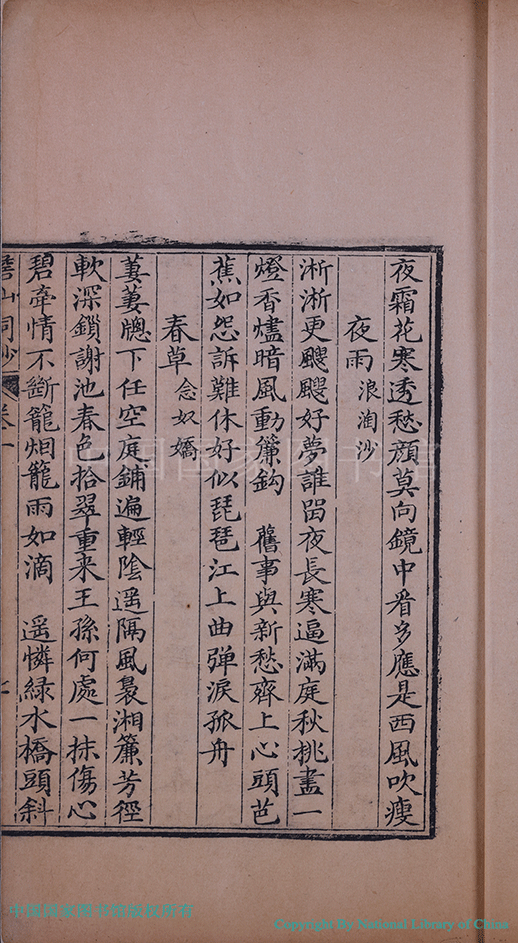 夜霜花寒透愁顏莫向鏡中看多應是西風吹瘦
夜雨 浪淘沙
淅淅更颼颼好夢誰留夜長寒逼滿庭秋挑盡一
燈香燼暗風動簾鈎 舊事與新愁齊上心頭芭
蕉如怨訴難休好似琵琶江上曲彈淚孤舟
春草 念奴嬌
萋萋牕下任空庭鋪遍輕陰遥隔風裊湘簾芳徑
軟深鎖謝池春色拾翠重来王孫何處一抹傷心
碧牽情不斷籠烟籠雨如滴 遥憐綠水橋頭斜
山詞鈔
卷一
中国国家图书馆
中国国家图书馆版权所有
Copyright By National Library of China